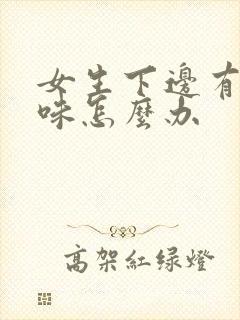 女生下邊有
味怎麼办
高架紅绿燈